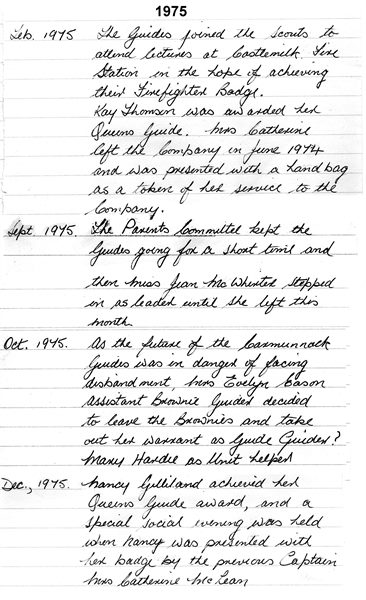 1975
Feb. 1975 The Guides joined the Scouts to
attend lectures at Castlemilk Fire
Station in the hope of achieving
their Firefighter Badge.
Kay Thomson was awarded her
Queens Guide. Mrs Catherine
left the Company in June 1974
and was presented with a handbag
as a token of her service to the
Company.
Sept 1975. The Parents Committee kept the
Guides going for a short time and
then Miss Jean McWhirter stepped
in as leader until she left this
month.
Oct. 1975. As the future of the Carmunnock
Guides was in danger of facing
disbandment, Mrs Evelyn Eason
Assistant Brownie Guider decided
to leave the Brownies and take
out her warrant as Guide Guider?
Mary Hardie as Unit helper
Dec., 1975. Nancy Gilliland achieved her
Queens Guide award, and a
special social evening was held
when Nancy was presented with
her badge by the previous Captain
Mrs Catherine McLean